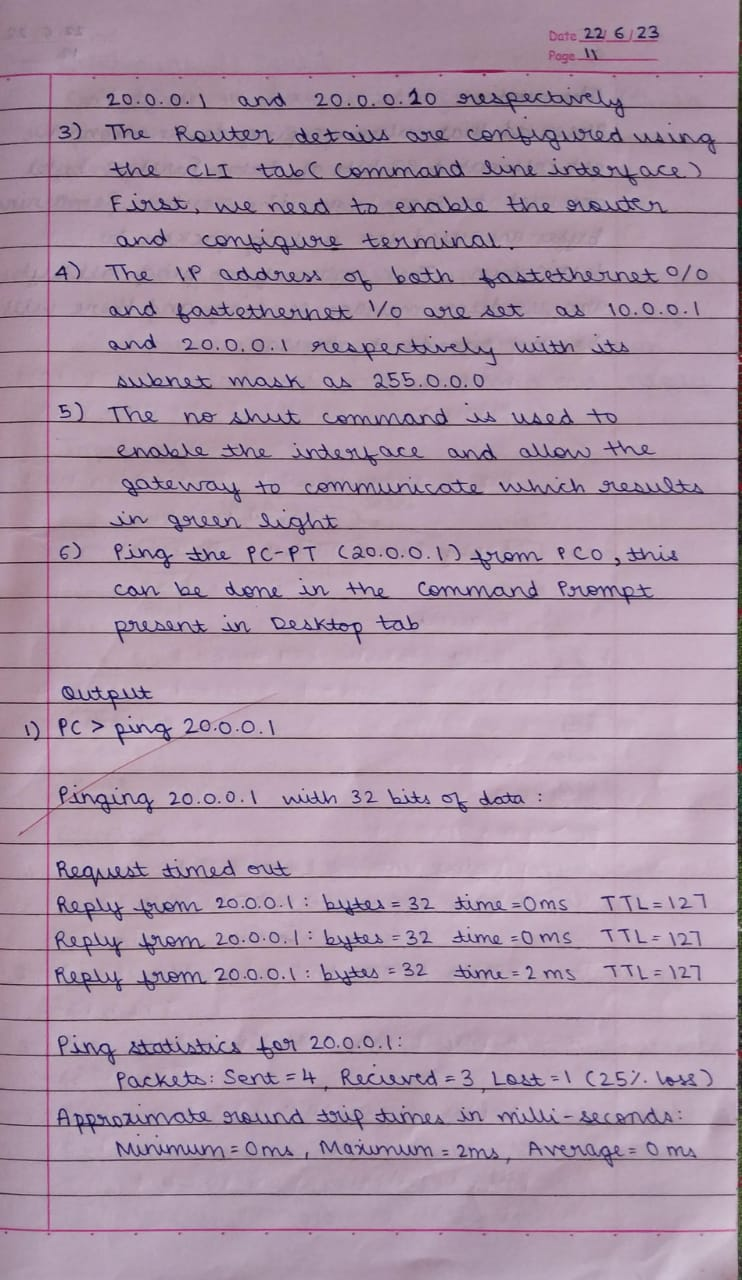 Date 22/6/23
Page 11
20.0.0.1 and 20.0.0.20 respectively
3) The Router details are configured using
the CLI tab (Command line interface)
First, we need to enable the router
and configure terminal.
4) The IP address of both fastethernet 0/0
and fastethernet 1/0 are set as 10.0.0.1
and 20.0.0.1 respectively with its
subnet mask as 255.0.0.0
5) The no shut command is used to
enable the interface and allow the
gateway to communicate which results
in green light
6) Ping the PC-PT (20.0.0.1) from PC0, this
can be done in the Command Prompt
present in Desktop tab
Output
1) PC > ping 20.0.0.1
Pinging 20.0.0.1 with 32 bits of data :
Request timed out
Reply from 20.0.0.1 : bytes = 32 time = 0ms TTL = 127
Reply from 20.0.0.1 : bytes = 32 time = 0 ms TTL = 127
Reply from 20.0.0.1 : bytes = 32 time = 2 ms TTL = 127
Ping statistics for 20.0.0.1:
Packets: Sent = 4, Recieved = 3, Lost = 1 (25% loss)
Approximate round trip times in milli-seconds:
Minimum = 0ms, Maximum = 2ms, Average = 0 ms